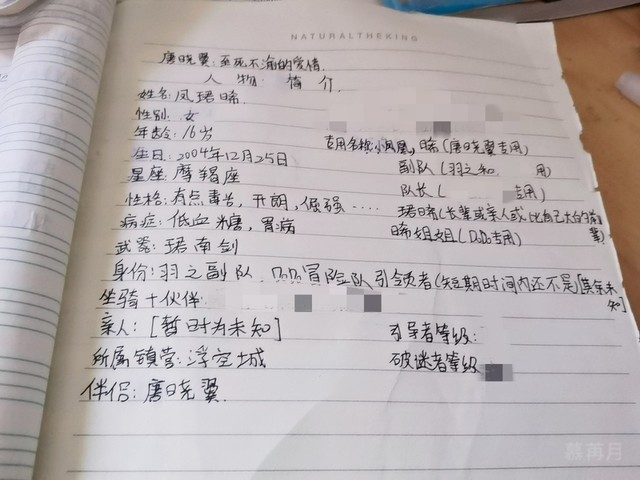 NATURALTHEKING
唐晓翼:至死不渝的爱情.
人物 简介.
姓名:凤珺晞
性别:女
年龄:16岁 专用名称:小凤凰,晞(唐晓翼专用)
生日:2004年12月25日 副队(羽之 用)
星座:摩羯座 队长( 专用)
性格:有点毒舌,开朗,倔强.... 珺晞(长辈或亲人或比自己大的前辈)
病症:低血糖,胃病 晞姐姐(DODO专用)
武器:珺南剑
身份:羽之副队 DODO冒险队引领者(短期时间内还不是[其余未知]
坐骑+伙伴:
亲人:[暂时为未知] 引导者等级:
所属镇营:浮空城 破谜者等级
伴侣:唐晓翼.
慕苒月